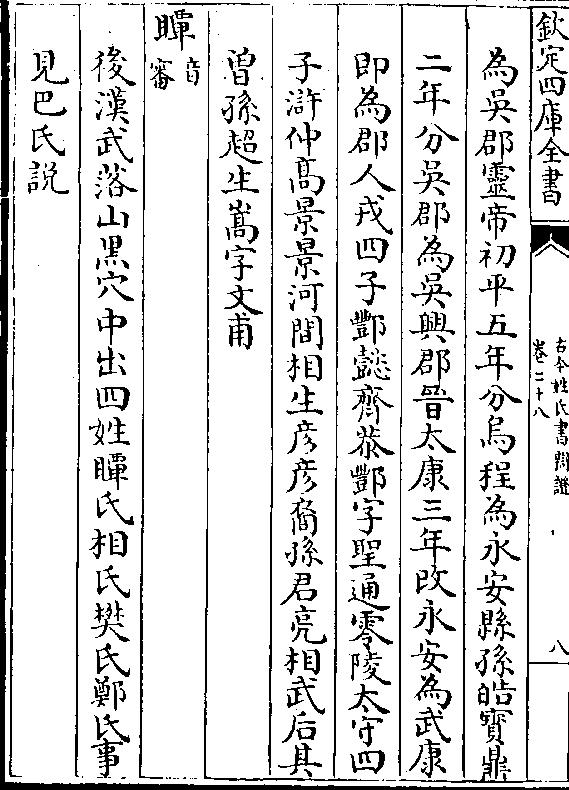 欽定四庫全書
古今姓氏書辯證
卷二十八
八
為吳郡靈帝初平五年分烏程為永安縣孫皓寳鼎
二年分吳郡為吳興郡晉太康三年改永安為武康
即為郡人戎四子酆懿齊恭酆字聖通零陵太守四
子滸仲髙景景河間相生彦彦裔孫君亮相武后其
曽孫超生嵩字文甫
瞫音審
後漢武落山黒穴中出四姓瞫氏相氏樊氏鄭氏事
見巴氏説